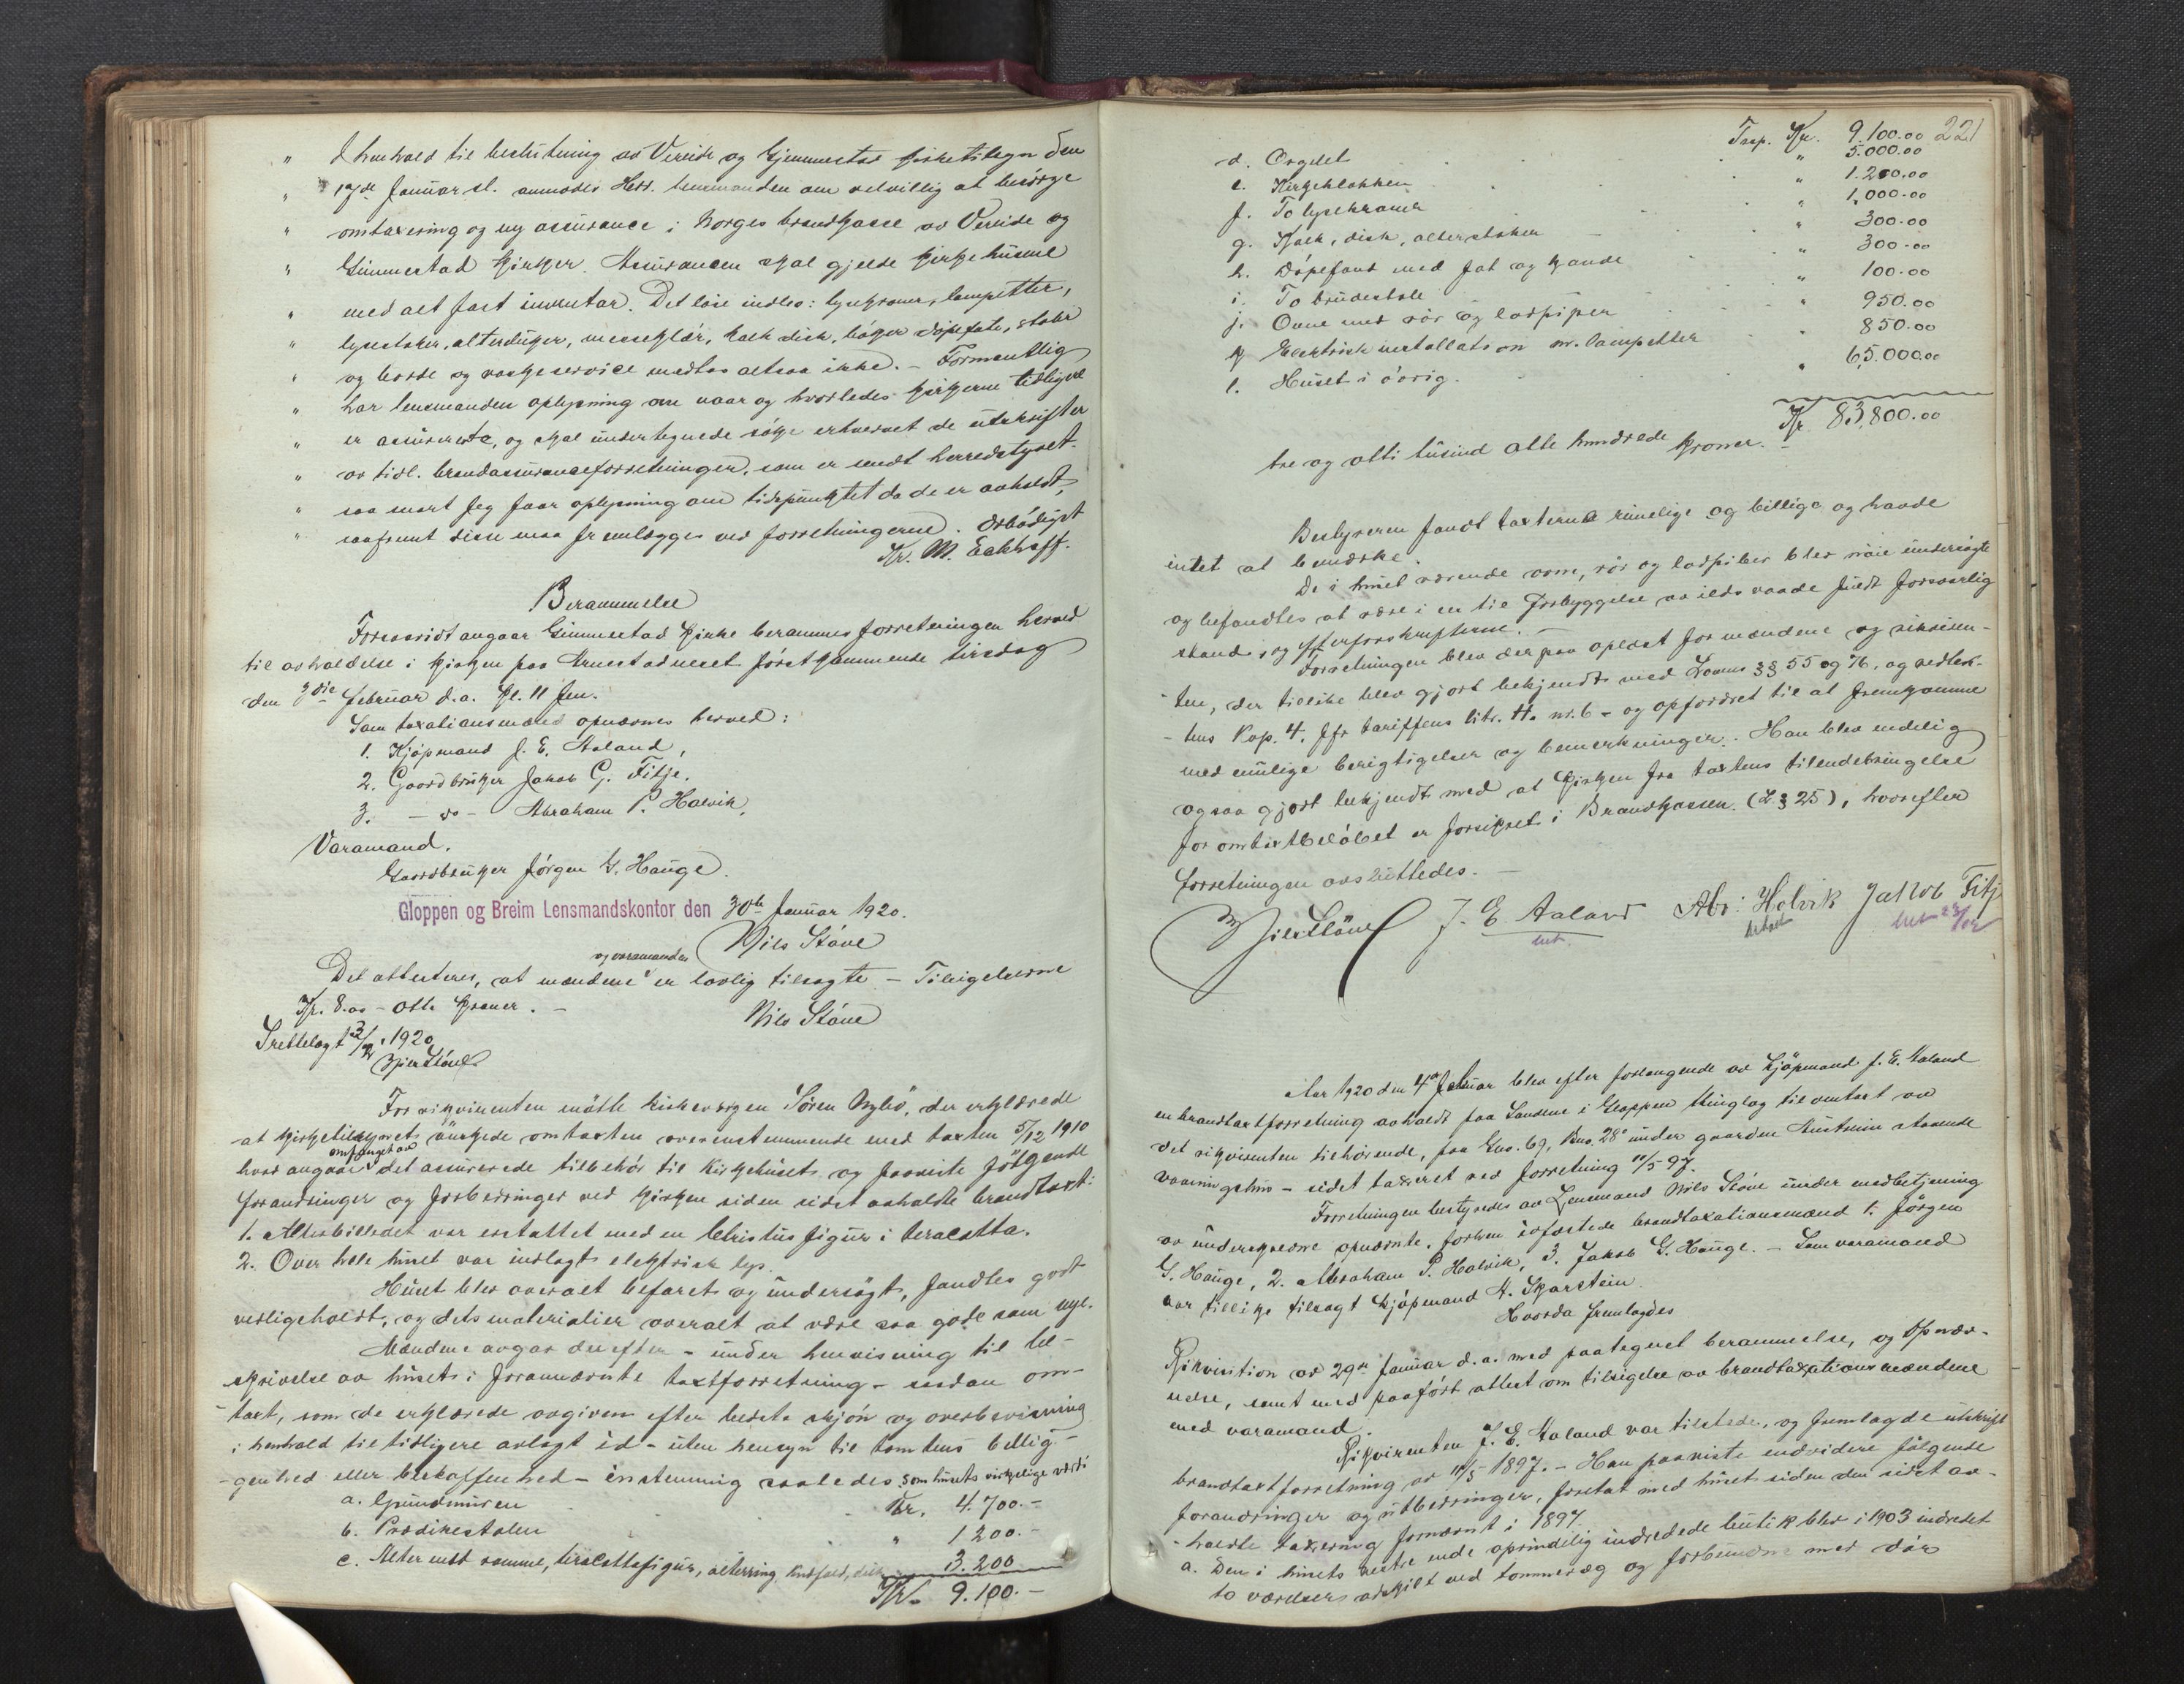 " I henhold til beslutning av Vereide og Gjemmestad kirketilsyn den
" 17de Januar sl. anmodes Herr. lensmanden om velvillig at besörge
" omtaxering og ny assurance i Norges brandkasse av Vereide og
" Gimmestad kirker. Assurancen skal gjelde kirkehusene
" med alt fast inventar. Det löse indbo: lysekroner, lampetter,
" lysestaker, alterduger, messeklær, kalk disk, böger döpefate, stoler
" og borde og vaskeservice medtas altsaa ikke. - Formentlig
" har lensmanden oplysning om naar og hvorledes kirkerne tidligere
" er assurerte, og skal undertegnede söke erhvervet de utskrifter
" av tidl. brandassuranceforretninger, som er sendt herredstyret
" saa snart jeg faar oplysning om tidspunktet da de er avholdt,
" saafremt disse maa fremlægges ved forretningerne. Ærbödigst
Kr. M. Eckhoff.
Berammelse
Forsaavidt angaar Gimmestad kirke berammes forretningen herved
til avholdelse i kirken paa Arnestadneset förstkommende tirsdag
den 3die februar d.a. kl. 11 fm.
Som taxationsmænd opnævnes herved:
1. Kjöpmand J. E. Aaland,
2. Gaardbruker Jakob G. Fitje.
3. - do - Abraham P. Holvik,
Varamand.
Gaardbruker Jörgen G. Hauge.
Gloppen og Breim Lensmandskontor den 30te Januar 1920.
Nils Stöve
og varamanden
Det attesteres, at mændene er lovlig tilsagte - Tilsigelserne
Kr. 8.00 - otte kroner. -
Nils Stöve
Irettelagt 3/2 1920
Nils Stöve
For rekvirenten mötte kirkevergen Sören Nybö, der erklærede
at kirketilsynets önskede omtaxten overenstemmende med taxten 5/12 1910
omfanget av
hvad angaar det assurerede tilbehör til kirkehuset, og paaviste fölgende
forandringer og forbedringer ved kirken siden sidst avholdte brandtaxt:
1. Alterbilledet var erstattet med en Christus figur i teracotta.
2. Over hele huset var indlagt elektrisk lys.
Huset blev overalt befaret og undersögt, fandtes godt
vedligeholdt, og dets materialier overalt at være saa gode som nye.
Mændene avgav derefter - under henvisning til be-
skrivelse av huset i forannævnte taxtforretning - saadan om-
taxt, som de erklærede avgiven efter bedste skjön og overbevisning
i henhold til tidligere avlagt ed - uten hensyn til tomtens beilig-
genhed eller beskaffenhed - enstemmig saaledes som husets virkelige værdi
a. Grundmuren Kr. 4.700.-
b. Prædikestolen " 1200.-
c. Alter med ramme, teracottafigur, alterring, knefald, 3.200
Kr. 9.100.-
221
Trsp. Kr. 9.100.00
d. Orgelet " 5.000.00
e. Kirkeklokken " 1.200.00
f. To lysekroner " 1,000.00
g. Kalk, disk, alterstaker " 300.00
h. Döpefont med fat og kande " 300.00
i. To brudestole " 100.00
j. Ovne med rör og ladpiper " 950.00
k. Elektrisk installation m. lampetter " 850.00
l. Huset i övrig. " 65,000.00
Kr. 83,800.00
tre og otti tusind otte hundrede kroner.
Bestyreren fandt taxterne rimelige og billige og havde
intet at bemærke.
De i huset værende ovne, rör og ladpiber blev nöie undersögte
og befandtes at være i en til forbyggelse av ildsvaade fuldt forsvarlig
stand, og efter forskrifterne. -
Forretningen blev derpaa oplæst for mændene og rekviren-
ten, der tillike blev gjort bekjendt med Lovens §§ 55 og 76, og vedtek-
tens Kap. 4, jfr tariffens litr. H. nr. 6 - og opfordret til at fremkomme
med mulige berigtigelser og bemerkninger. Han blev endelig
ogsaa gjort bekjendt med at kirken fra taxtens tilendebringelse
for omtaxtbelöbet er forsikret i Brandkassen (L. § 25), hvorefter
forretningen avsluttedes. -
Nils Stöve J. E. Aaland Abr: Holvik Jakob Fitj
Aar 1920 den 4de Februar blev efter forlangende av Kjöpmand J. E. Aaland
en brandtaxtforretning avholdt paa Sandene i Gloppen thinglag til omtaxt av
det rekvirenten tilhörende, paa Gno. 69, Bno. 28 under gaarden Austrum staaende
vaaningshus - sidst taxeret ved forretning 11/5 97.
Forretningen bestyredes av Lensmand Nils Stöve under medbetjening
av underskrevne opnævnte, forhen edfæstede brandtaxationsmænd 1. Jörgen
G. Hauge, 2. Abraham P. Holvik, 3. Jakob G. Hauge. - Som varamand
var tillike tilsagt kjöpmand A. Skarstein.
Hvorda fremlagdes
Rekvisition av 29de Januar d.a. med paategnet berammelse, og opnæv-
nelse, samt med paaført attest om tilsigelse av brandtaxationsmændene
med varamand.
Rekvirenten J. E. Aaland var tilstede, og fremlagde utskrift
brandtaxtforretning av 11/5 1897. - Han paaviste endvidere fölgende
forandringer og utbedringer, foretat med huset siden den sidst av-
holdte taxering fornævnt i 1897.
a. Den i husets vestre ende oprindelig indredede butik blev i 1903 indredet
to værelser adskilt ved tommervæg og forbundne med dör